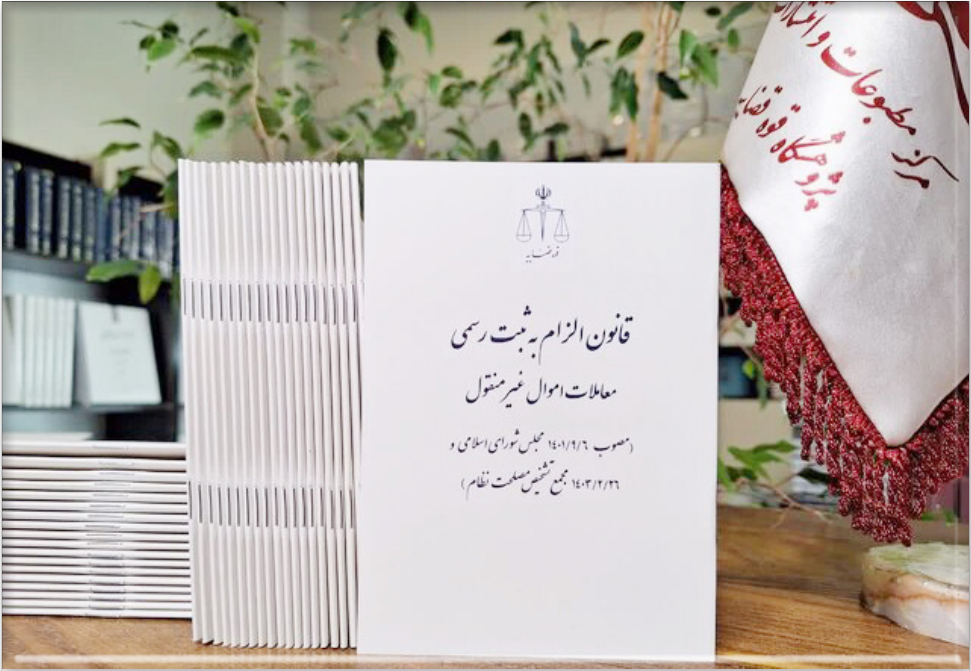 قوه قضاییه
قانون الزام به ثبت رسمی
معاملات اموال غیر منقول
(مصوب ۱۴۰۱/۹/۶ مجلس شورای اسلامی و
۱۴۰۳/۲/۲۶ مجمع تشخیص مصلحت نظام)
مرکز مطبوعات و انتشارات
پژوهشگاه قوه قضاییه